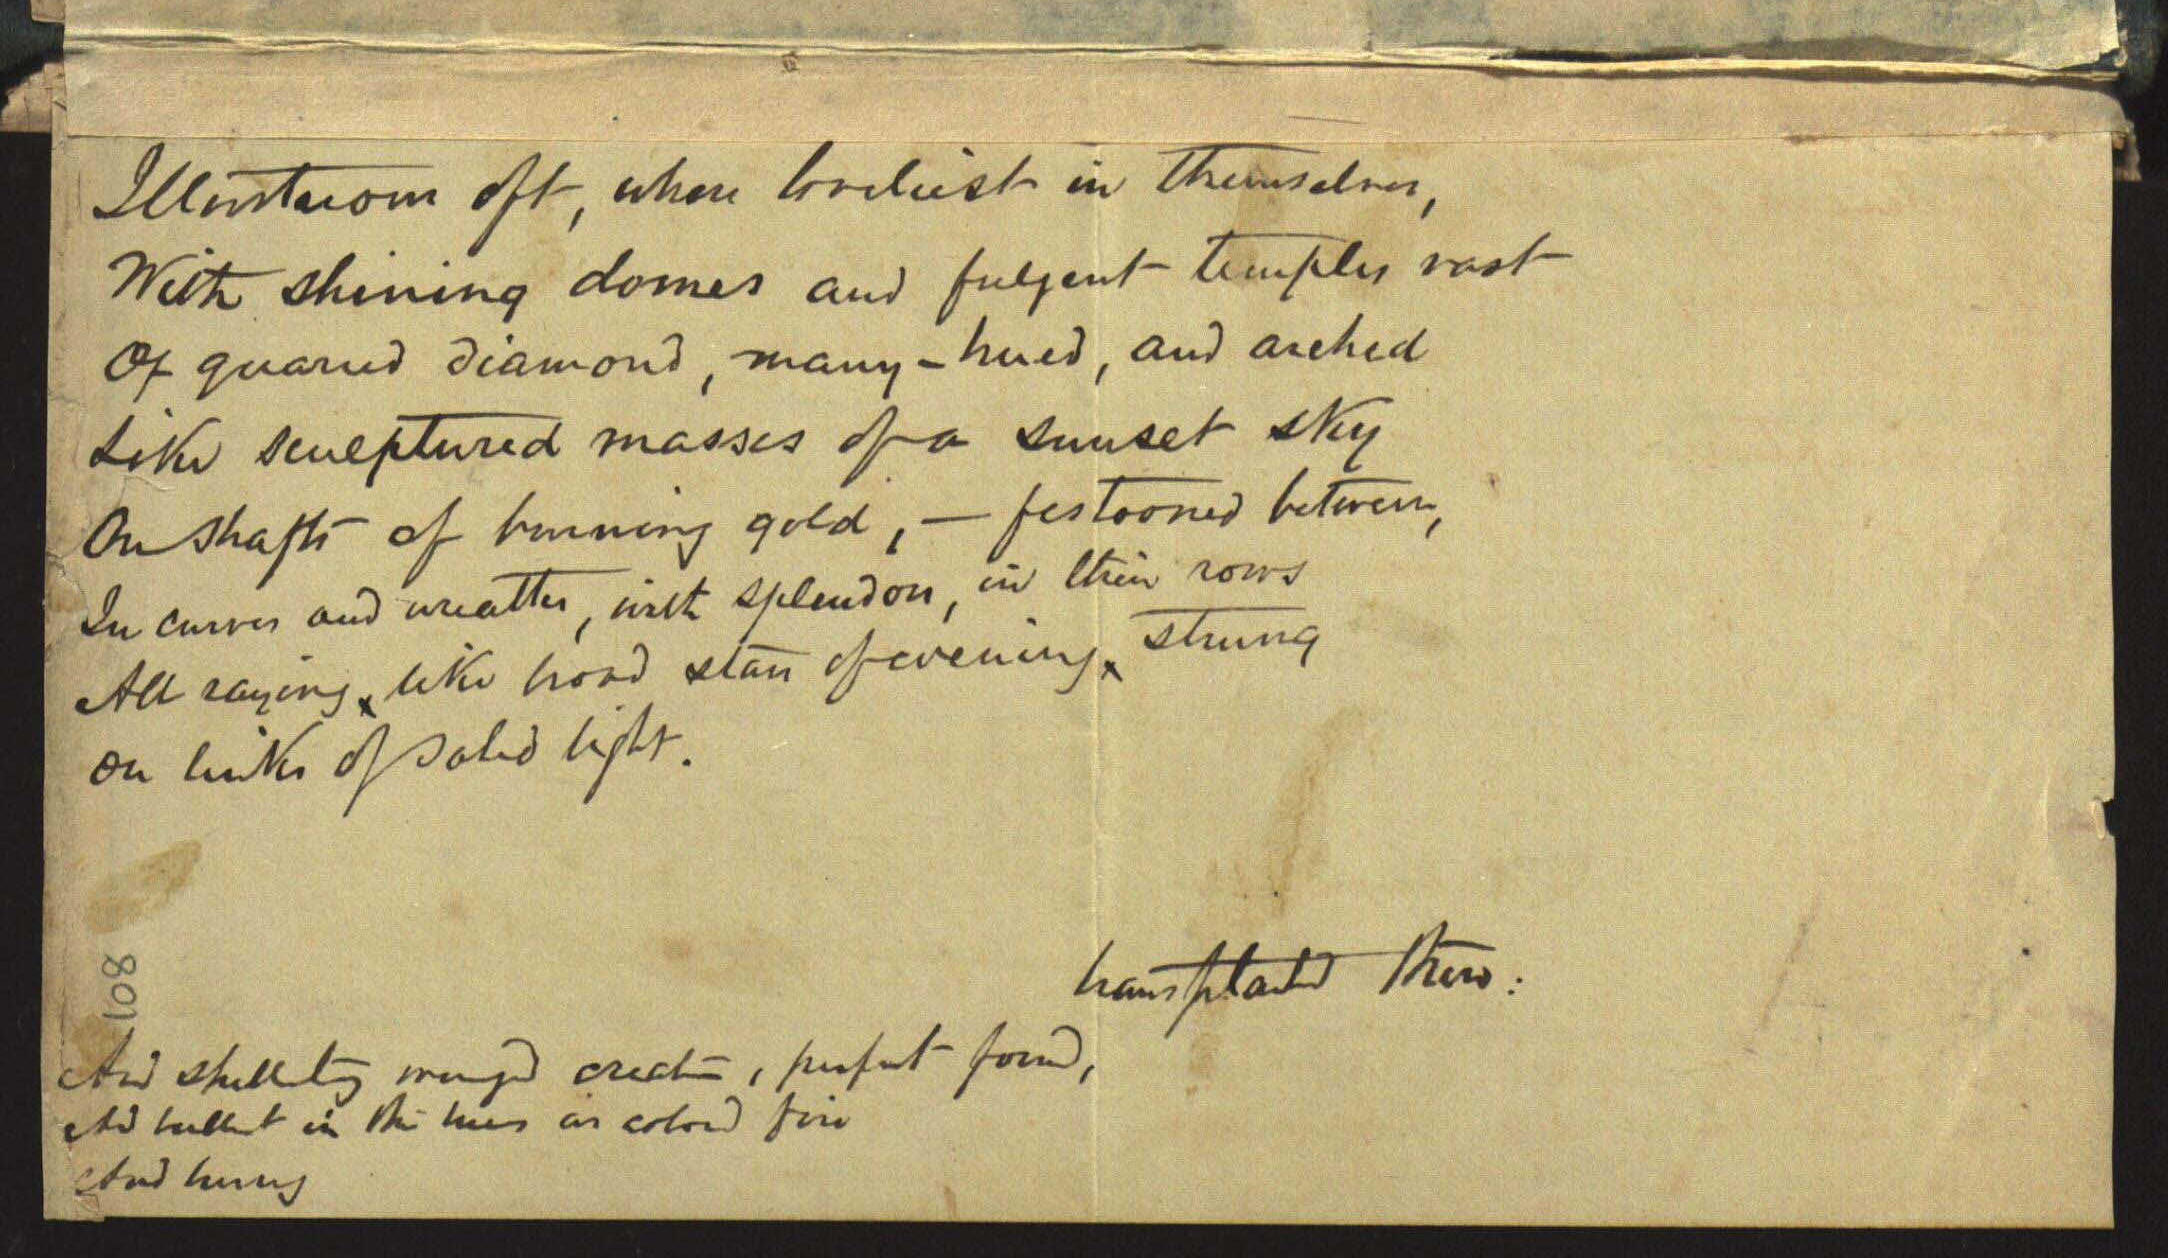 Illustrious oft, where loveliest in themselves,
With shining domes and fulgent temples vast
Of quarried diamond, many-hued, and arched
Like sculptured masses of a sunset sky
On shafts of burning gold, — festooned between,
In curves and wreathes, with splendors, in their rows
All raying, like broad stars of evening, strung
On links of solid light.
transplanted there:
108
And winged , perfect formed,
And in the hues as colored fire
And hung